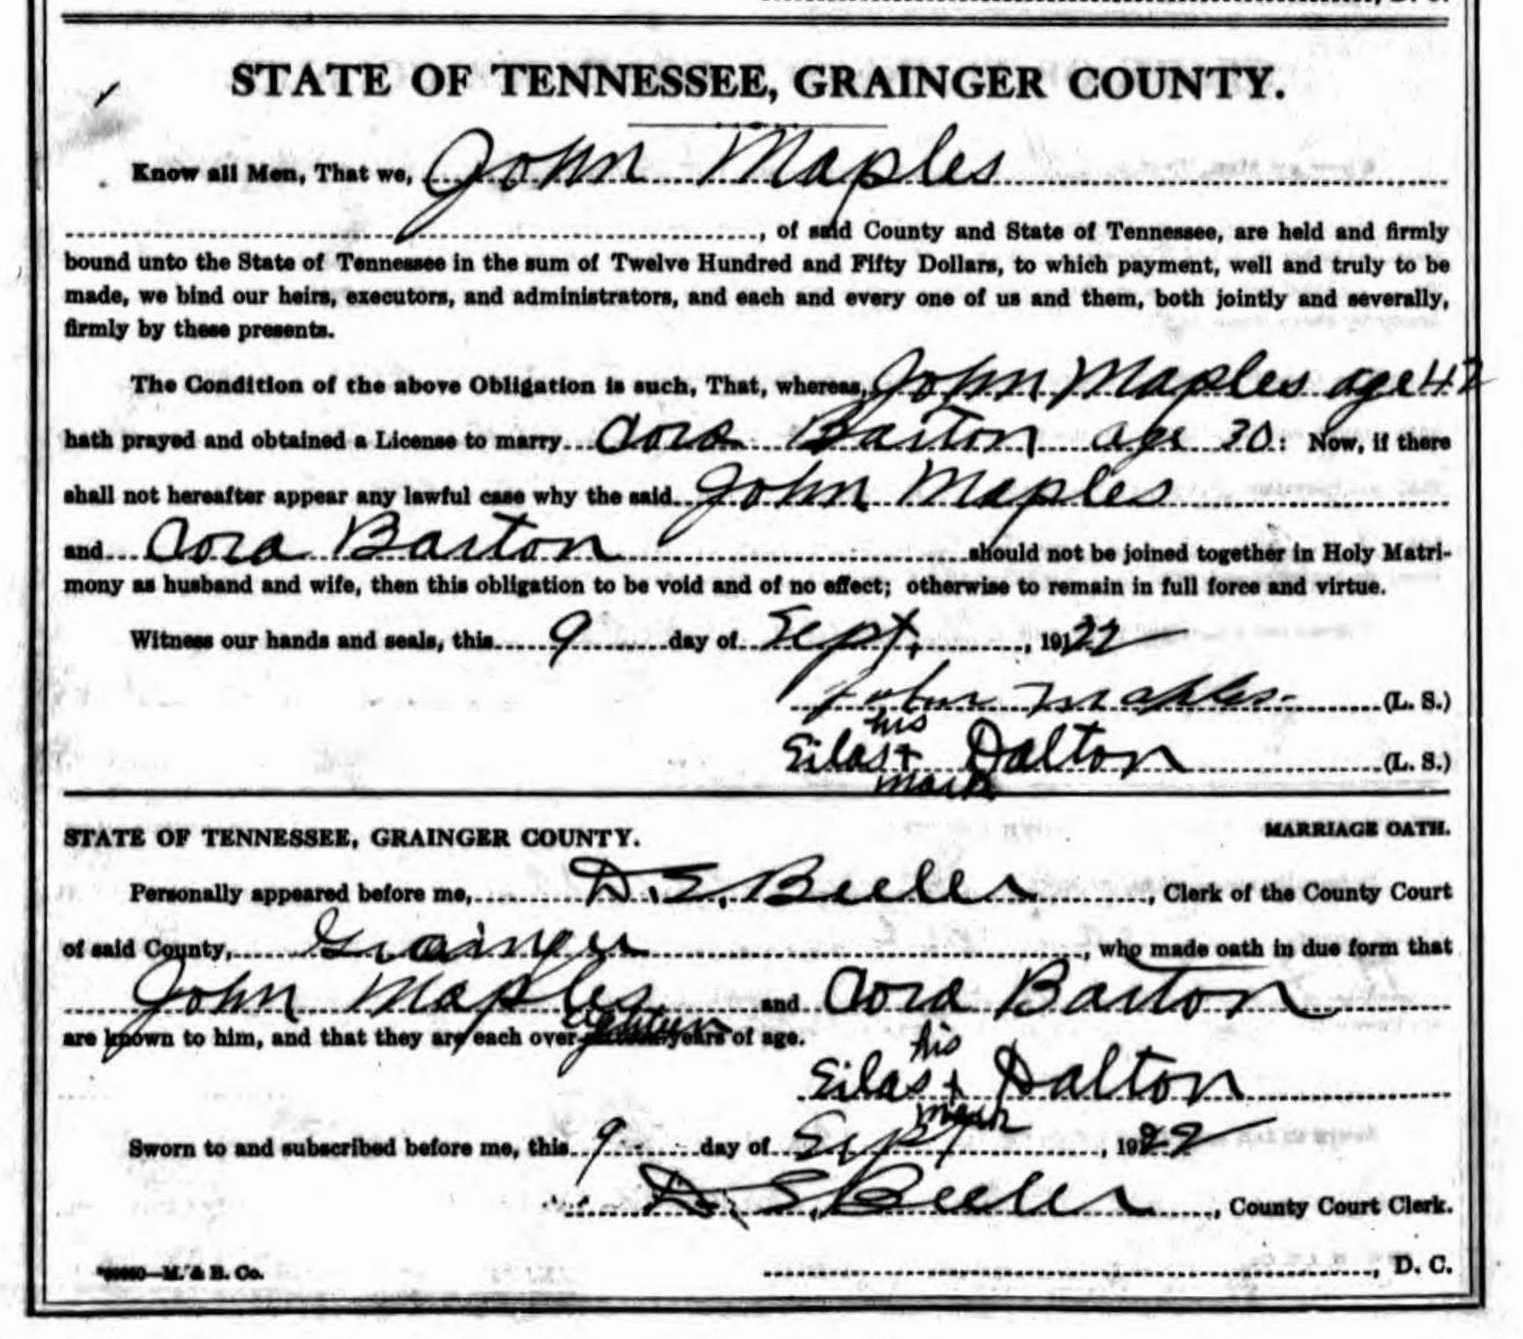 STATE OF TENNESSEE, GRAINGER COUNTY.
Know all Men, That we, John Maples
, of said County and State of Tennessee, are held and firmly
bound unto the State of Tennessee in the sum of Twelve Hundred and Fifty Dollars, to which payment, well and truly to be
made, we bind our heirs, executors, and administrators, and each and every one of us and them, both jointly and severally,
firmly by these presents.
The Condition of the above Obligation is such, That, whereas, John Maples age 42
hath prayed and obtained a License to marry Cora Barton age 30: Now, if there
shall not hereafter appear any lawful case why the said John Maples
and Cora Barton should not be joined together in Holy Matri-
mony as husband and wife, then this obligation to be void and of no effect; otherwise to remain in full force and virtue.
Witness our hands and seals, this 9 day of Sept, 1922
John Maples (L. S.)
his
Silas + Dalton (L. S.)
mark
STATE OF TENNESSEE, GRAINGER COUNTY. MARRIAGE OATH.
Personally appeared before me, D. E. Beeler, Clerk of the County Court
of said County, Grainger, who made oath in due form that
John Maples and Cora Barton
are known to him, and that they are each over eighteen years of age.
his
Silas + Dalton
mark
Sworn to and subscribed before me, this 9 day of Sept, 1922
D. E. Beeler, County Court Clerk.
—M. & B. Co. , D. C.